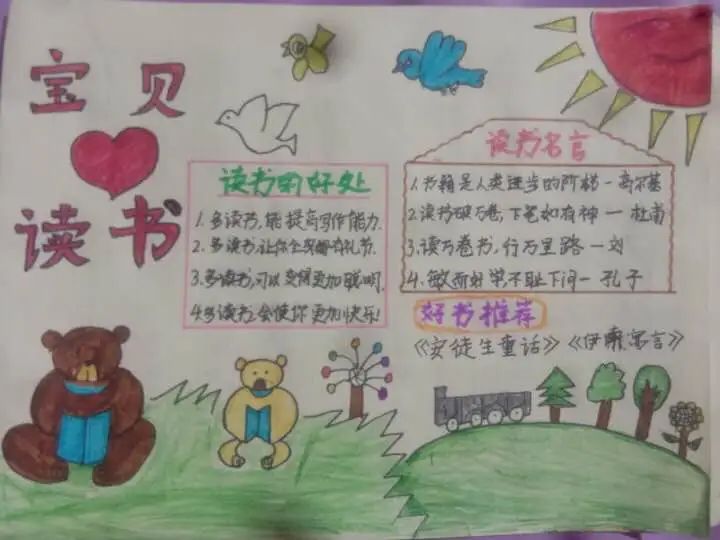 宝贝
读书
读书的好处
1.多读书,能提高写作能力.
2.多读书,让你全身都有礼节.
3.多读书,可以变得更加聪明.
4.多读书,会使你更加快乐!
读书名言
1.书籍是人类进步的阶梯一高尔基
2.读书破万卷,下笔如有神一杜甫
3.读万卷书,行万里路一刘
4.敏而好学不耻下问一孔子
好书推荐
《安徒生童话》《伊索寓言》